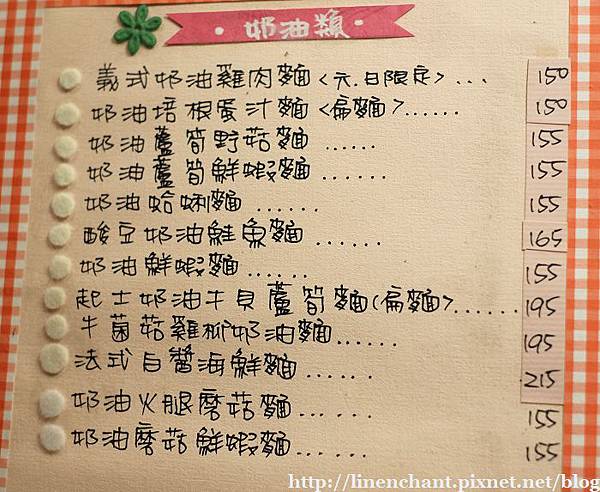 奶油類
義式奶油雞肉麵<六.日限定>... 150
奶油培根蛋汁麵<扁麵>...... 150
奶油蘆筍野菇麵...... 155
奶油蘆筍鮮蝦麵...... 155
奶油蛤蜊麵...... 155
酸豆奶油鮭魚麵...... 165
奶油鮮蝦麵...... 155
起士奶油干貝蘆筍麵(扁麵>...... 195
牛菌菇雞柳奶油麵...... 195
法式白醬海鮮麵...... 215
奶油火腿磨菇麵...... 155
奶油磨菇鮮蝦麵...... 155
http://linenchant.pixnet.net/blog